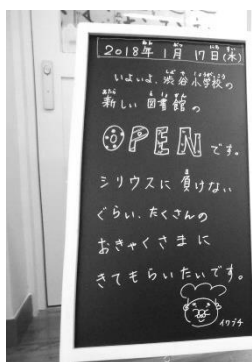 2018年1月17日(水)
いよいよ、渋谷小学校の
新しい図書館の
OPENです。
シリウスに負けない
ぐらい、たくさんの
おきゃくさまに
きてもらいたいです。
イワブチ